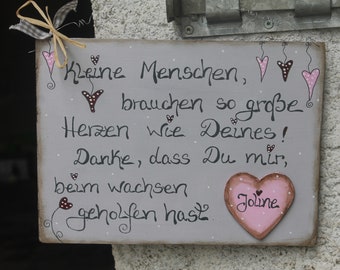 Kleine Menschen,
brauchen so große
Herzen wie Deines!
Danke, dass Du mir,
beim wachsen
geholfen hast
Joline